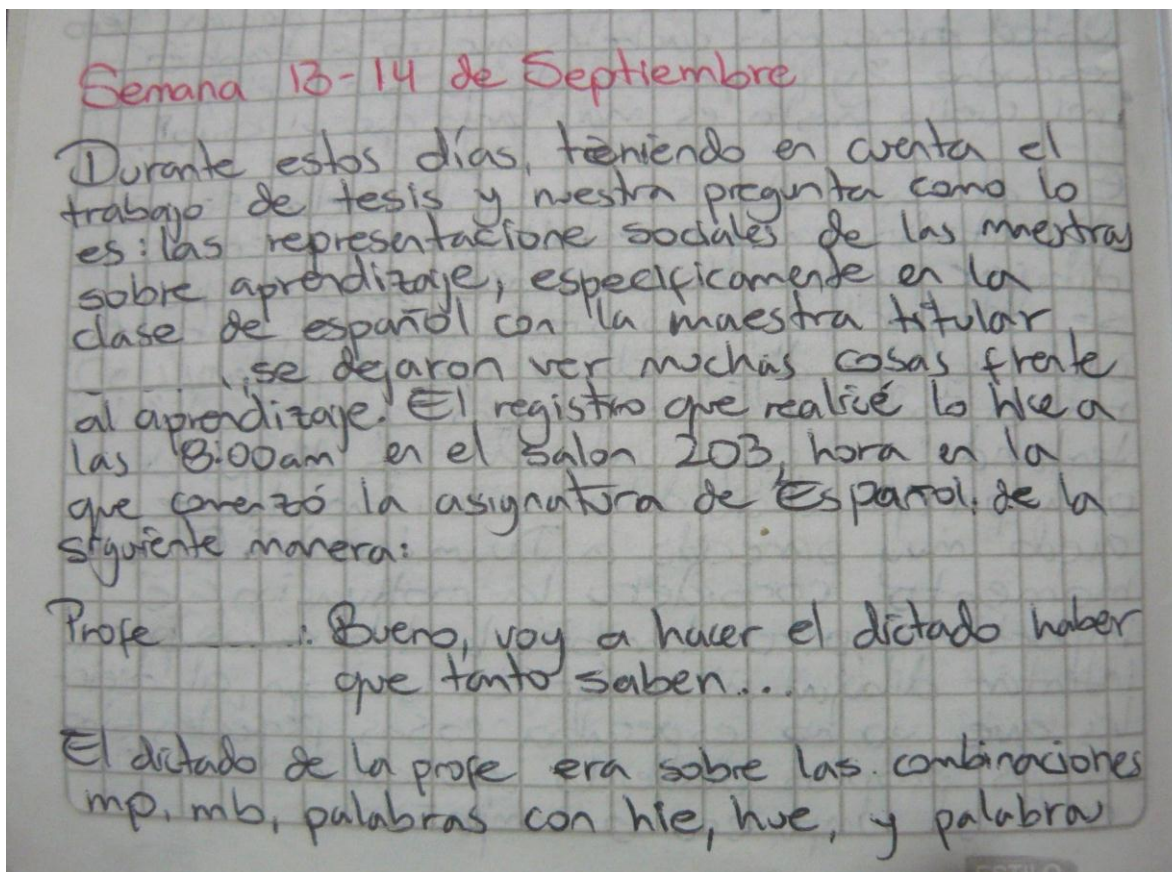 Semana 13-14 de Septiembre
Durante estos días, teniendo en cuenta el
trabajo de tesis y nuestra pregunta como lo
es: las representacione sociales de las maestras
sobre aprendizaje, específicamente en la
clase de español con la maestra titular
se dejaron ver muchas cosas frente
al aprendizaje. El registro que realicé lo hice a
las 8:00am en el salon 203, hora en la
que comenzó la asignatura de Español, de la
siguiente manera:
Profe ......: Bueno, voy a hacer el dictado haber
que tanto saben...
El dictado de la profe era sobre las combinaciones
mp, mb, palabras con hie, hue, y palabras